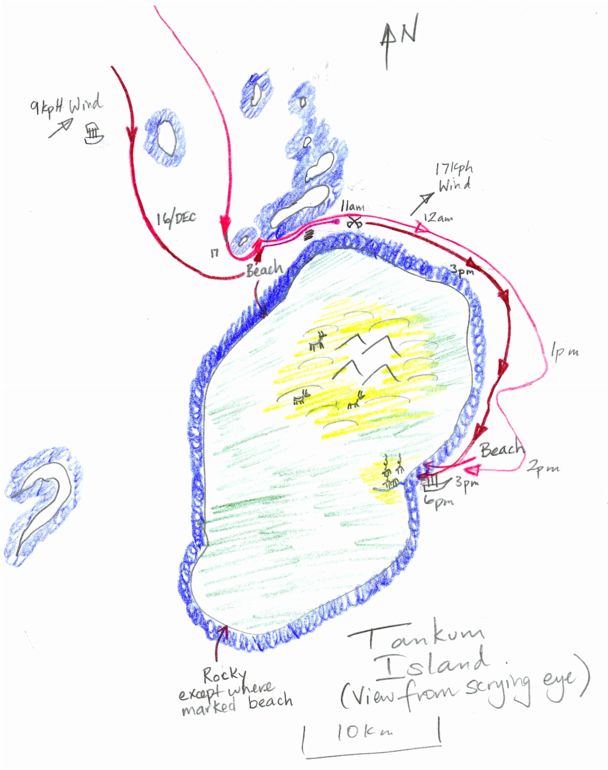 N
9kpH Wind
17kph
Wind
16/DEC
11am
12am
17
Beach
3pm
1pm
Beach
2pm
3pm
6pm
Tankum
Island
(View from scrying eye)
Rocky
except where
marked beach
10km